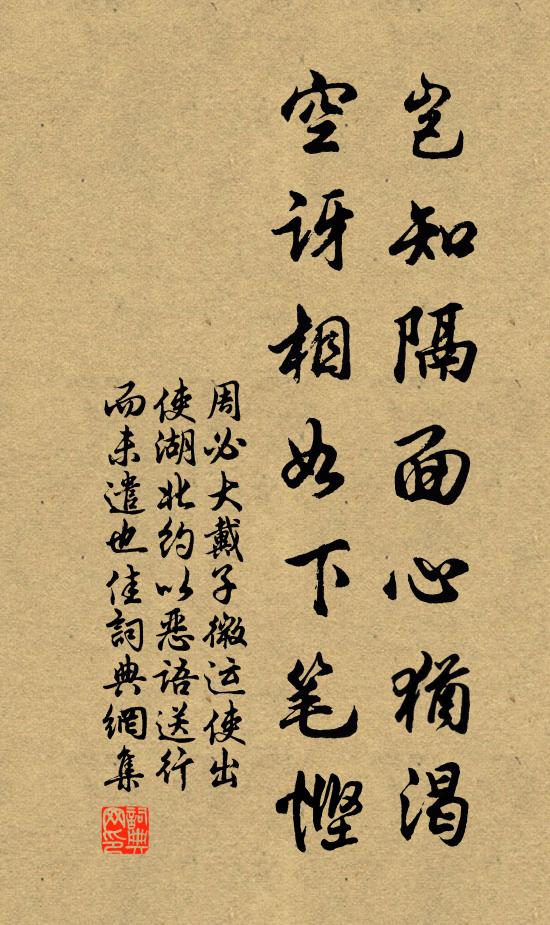 岂知隔面心犹渴
空讶相如下笔悭
周必大戴子微运使出
使湖北约以恶语送行
而未遣也佳詞典網集
詞典
网印